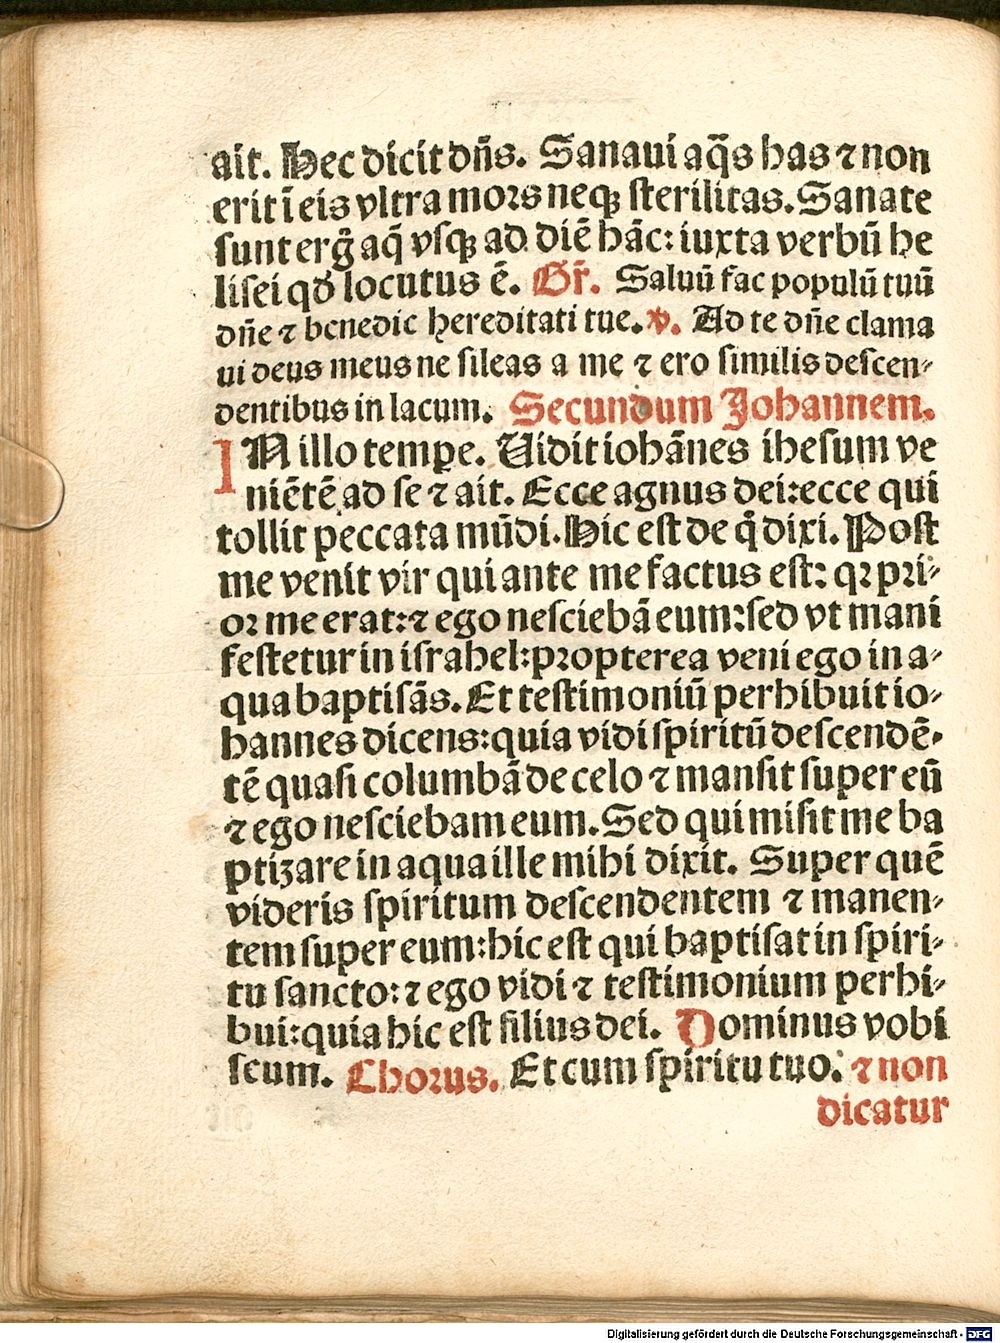 ait. Hec dicit dn̄s. Sanaui aq̄s has ⁊ non
erit ī eis vltra mors neqꝫ sterilitas. Sanate
sunt erḡ aq̄ vsqꝫ ad diē hāc: iuxta verbū he
lisei qđ locutus ē. Gr̄. Saluū fac populū tuū
dn̄e ⁊ benedic hereditati tue. ℣. Ad te dn̄e clama
ui deus meus ne sileas a me ⁊ ero similis descen⸗
dentibus in lacum. Secundum Johannem.
IN illo tempe. Uidit iohānes ihesum ve
niētē ad se ⁊ ait. Ecce agnus dei: ecce qui
tollit peccata mūdi. Hic est de q̄ dixi. Post
me venit vir qui ante me factus est: qꝛ pri⸗
or me erat: ⁊ ego nesciebā eum: sed vt mani
festetur in israhel: propterea veni ego in a⸗
qua baptisās. Et testimoniū perhibuit io⸗
hannes dicens: quia vidi spiritū descendē⸗
tē quasi columbā de celo ⁊ mansit super eū
⁊ ego nesciebam eum. Sed qui misit me ba
ptizare in aqua ille mihi dixit. Super quē
videris spiritum descendentem ⁊ manen⸗
tem super eum: hic est qui baptisat in spiri⸗
tu sancto: ⁊ ego vidi ⁊ testimonium perhi⸗
bui: quia hic est filius dei. Dominus vobi
scum. Chorus. Et cum spiritu tuo: ⁊ non
dicatur
Digitalisierung gefördert durch die Deutsche Forschungsgemeinschaft - DFG